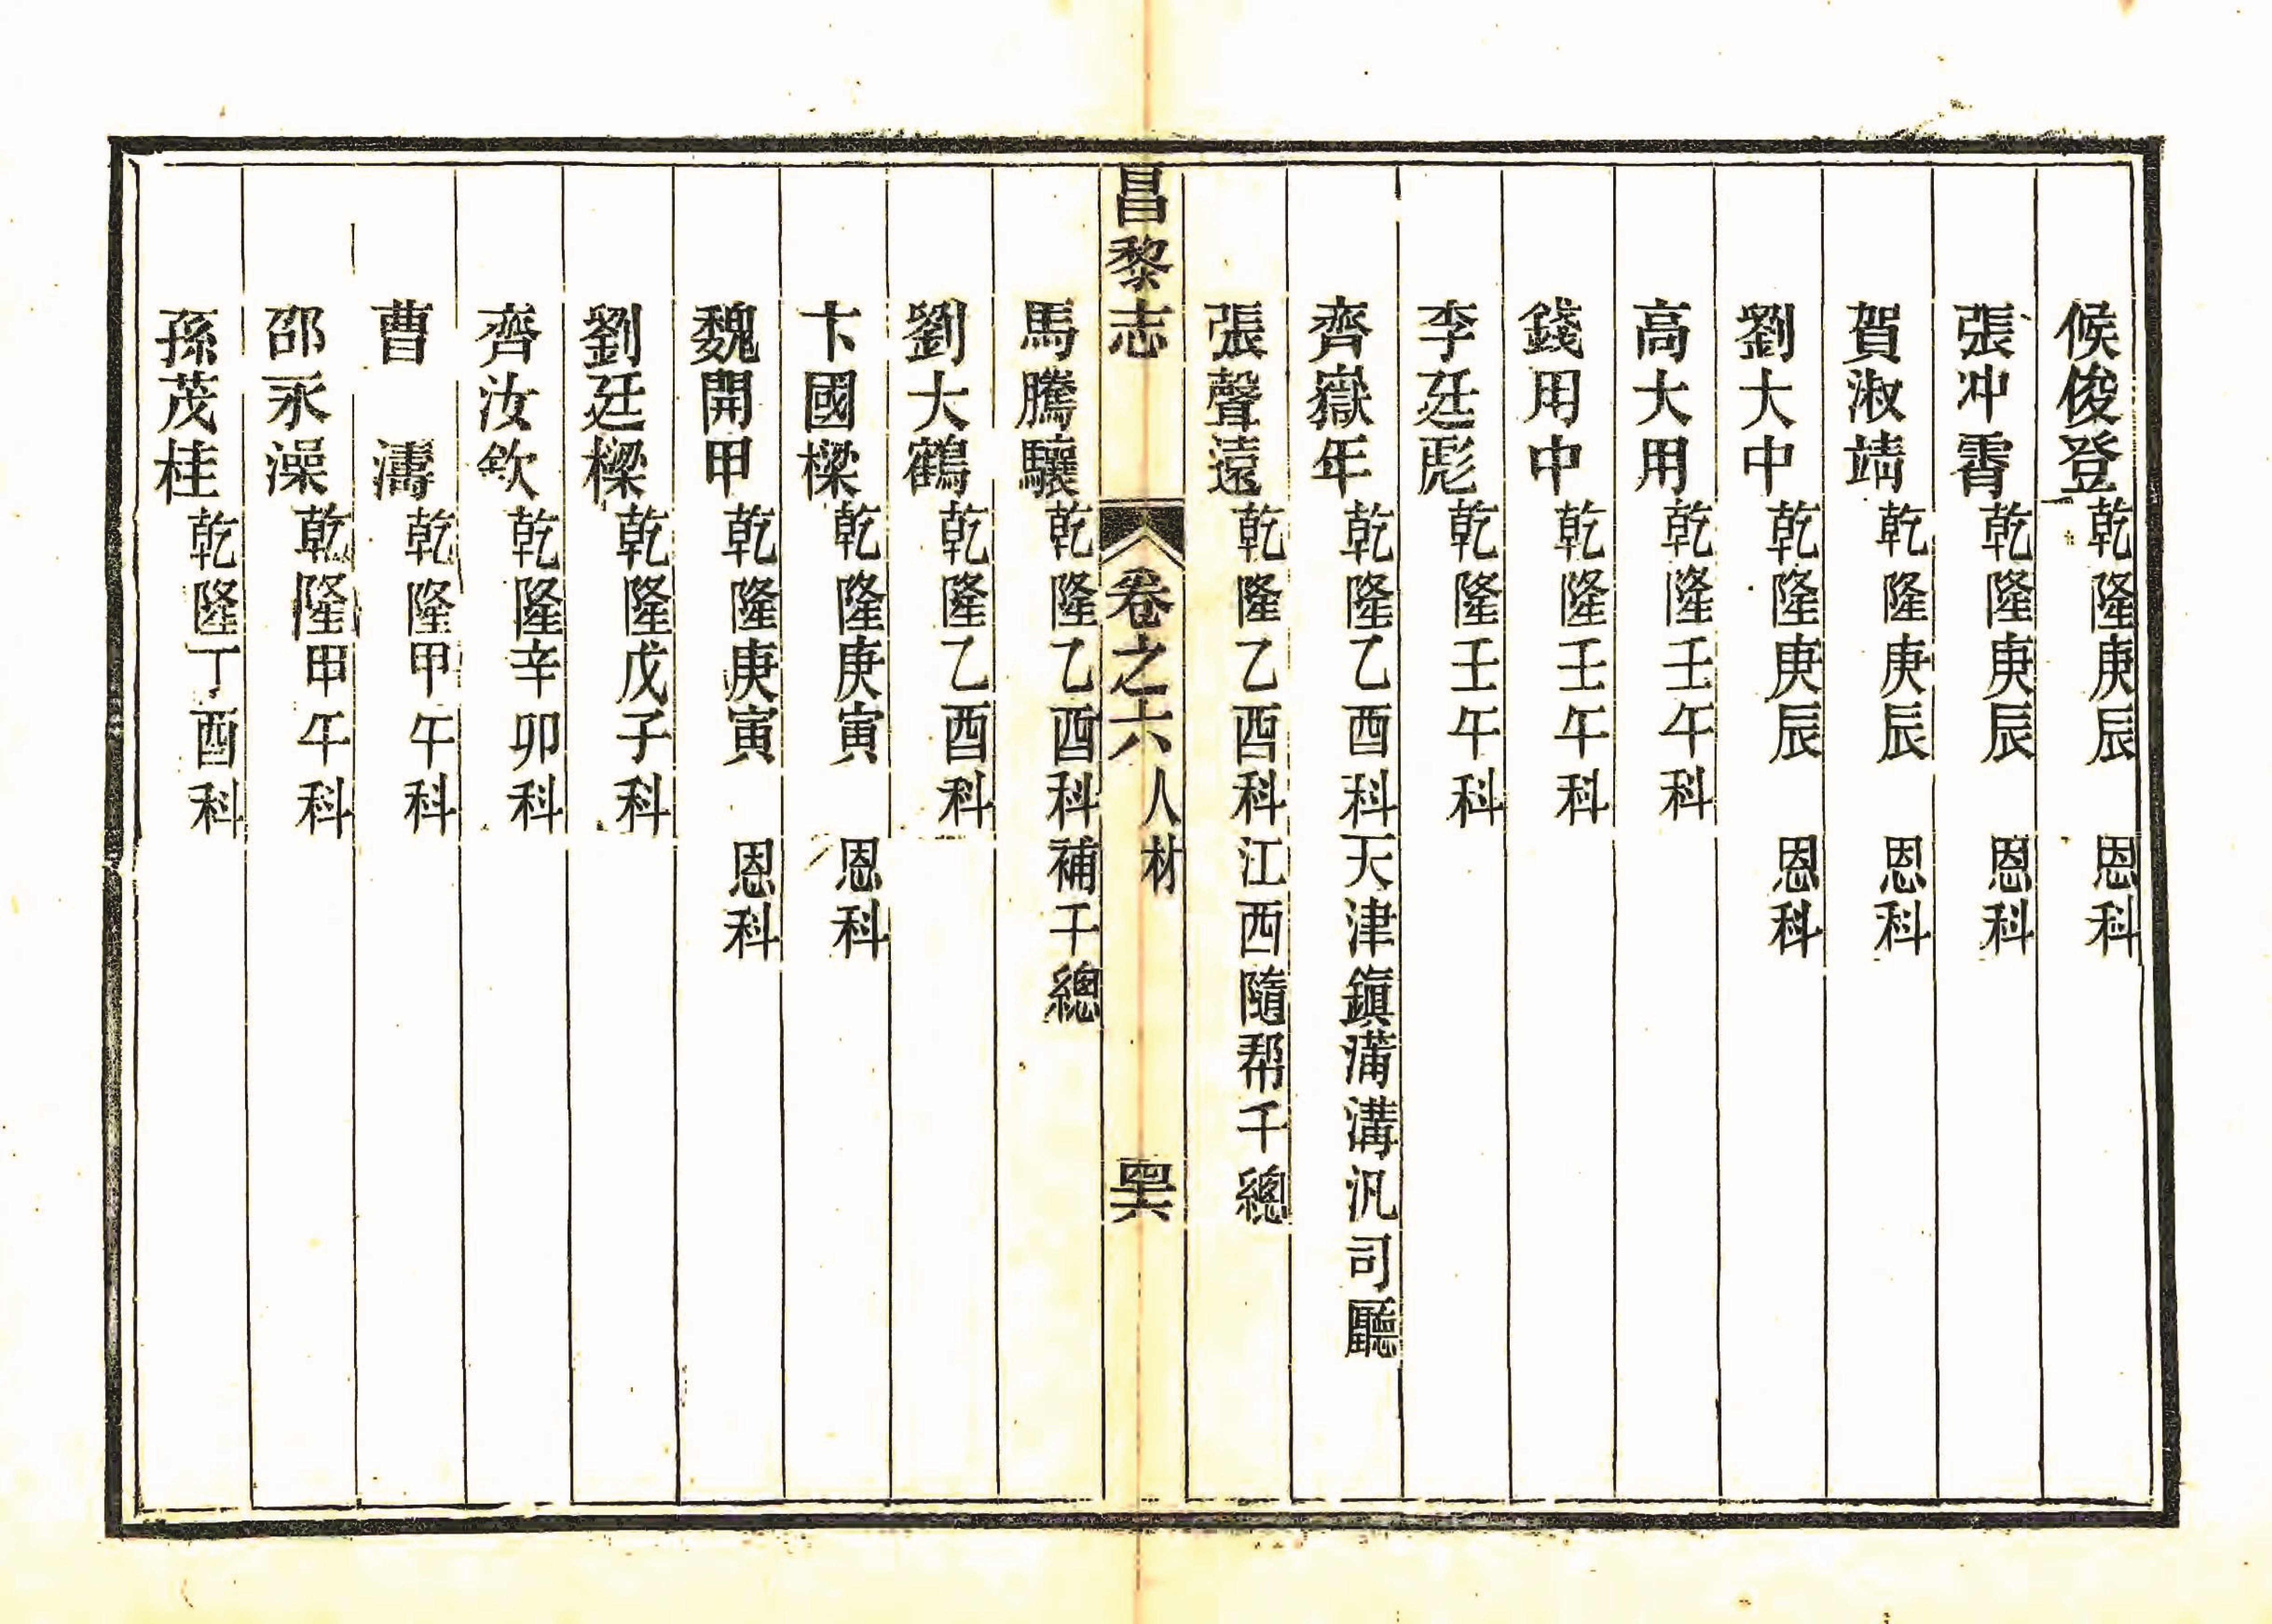 候俊登乾隆庚辰　恩科
張冲霄乾隆庚辰　恩科
賀淑靖乾隆庚辰　恩科
劉大中乾隆庚辰　恩科
高大用乾隆壬午科
錢用中乾隆壬午科
李廷彪乾隆壬午科
齊嶽年乾隆乙酉科天津鎭蒲溝汛司廳
張聲遠乾隆乙酉科江西隨帮千總
昌黎志　卷之六人材　四六
馬騰驤乾隆乙酉科補千總
劉大鶴乾隆乙酉科
卞國樑乾隆庚寅　恩科
魏開甲乾隆庚寅　恩科
劉廷樑乾隆戊子科
齊汝欽乾隆辛卯科
曹　濤乾隆甲午科
邵永澡乾隆甲午科
孫茂桂乾隆丁酉科